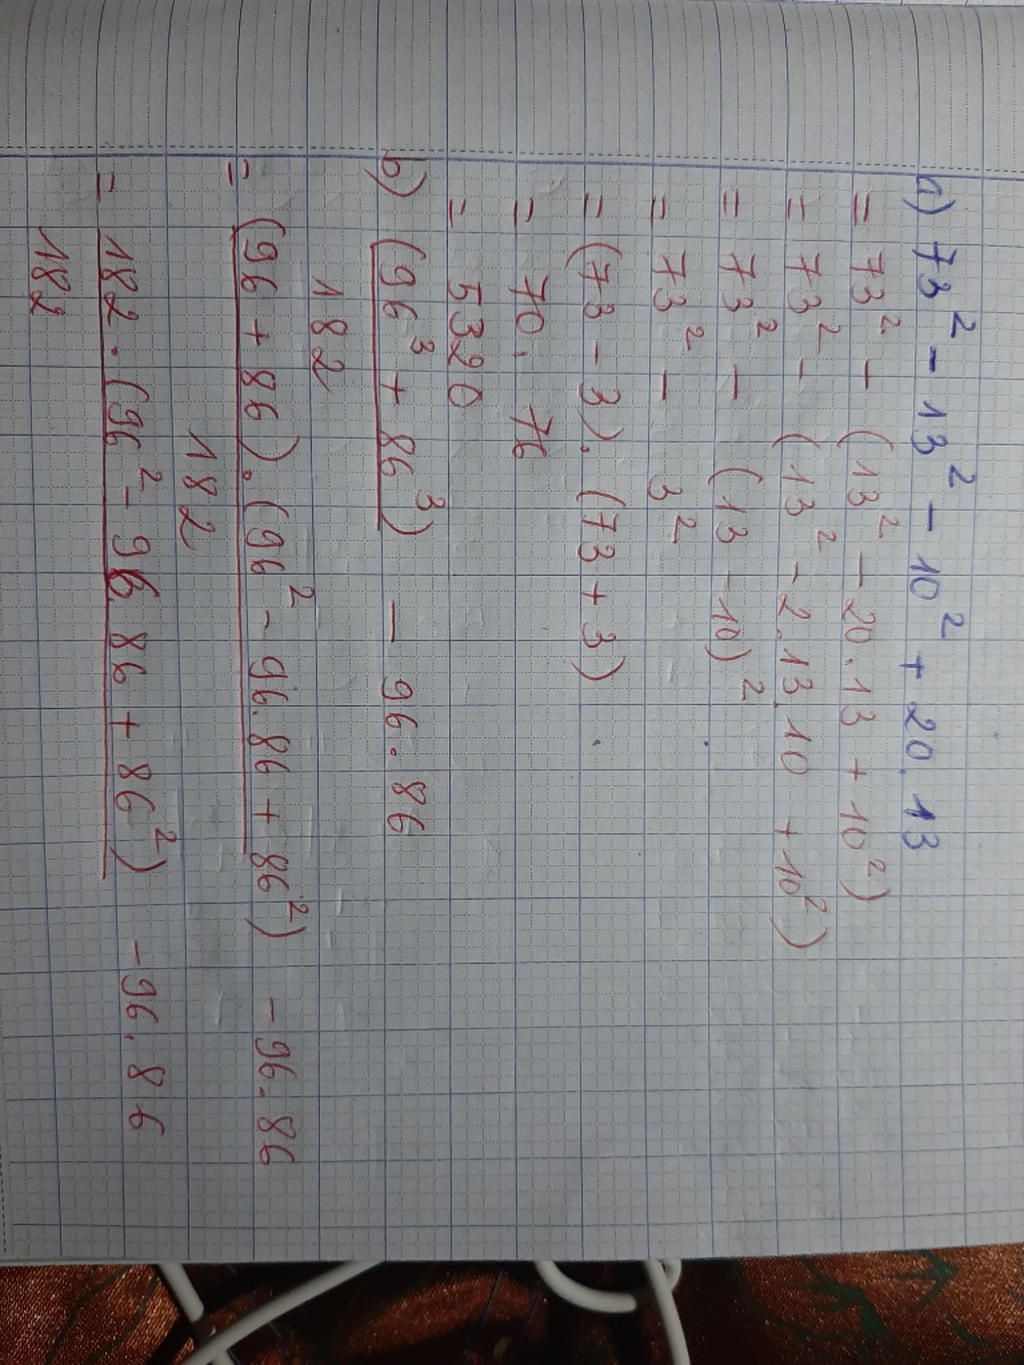 a) 73² - 13² - 10² + 20.13
= 73² - (13² - 20.13 + 10²)
= 73² - (13² - 2.13.10 + 10²)
= 73² - (13 - 10)²
= 73² - 3²
= (73 - 3).(73 + 3)
= 70.76
= 5320
b) (96³ + 86³) - 96.86
182
= (96 + 86).(96² - 96.86 + 86²) - 96.86
182
= 182.(96² - 96 86 + 86²) - 96.86
182